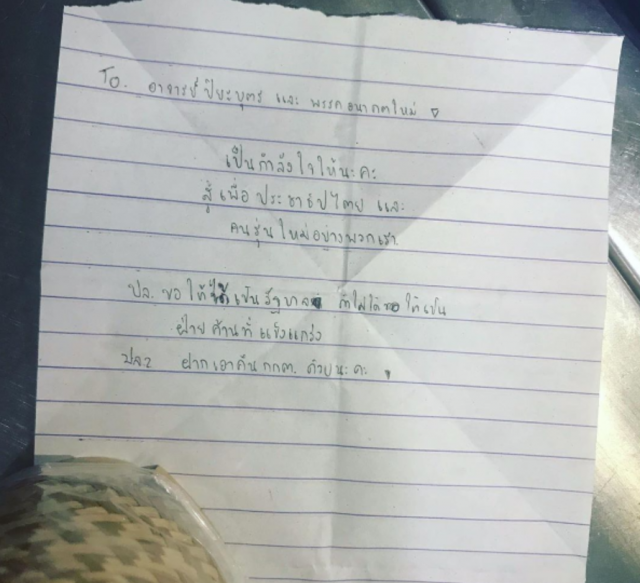 TO. อาจารย์ปิยะบุตร และ พรรคอนาคตใหม่
เป็นกำลังใจให้นะคะ
สู้เพื่อประชาธิปไตย และ
คนรุ่นใหม่อย่างพวกเรา
ปล. ขอให้ได้เป็นรัฐบาล ถ้าไม่ได้ขอให้เป็น
ฝ่ายค้านที่แข็งแกร่ง
ปล2 ฝากเอาคืน กกต. ด้วยนะคะ